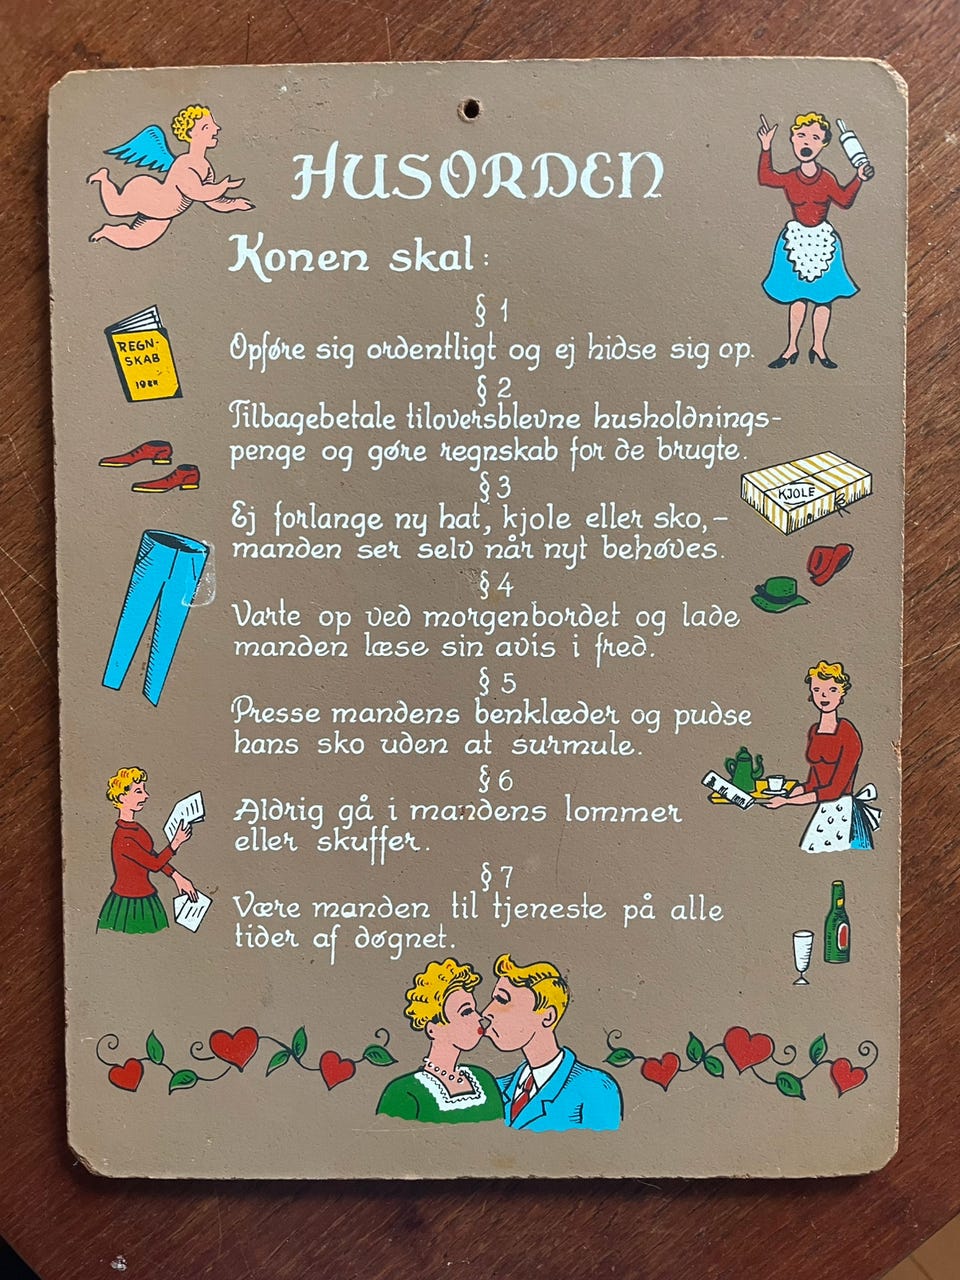 HUSORDEN
Konen skal:
§ 1
Opføre sig ordentligt og ej hidse sig op.
§ 2
Tilbagebetale tiloversblevne husholdnings-
penge og gøre regnskab for de brugte.
§ 3
Ej forlange ny hat, kjole eller sko,-
manden ser selv når nyt behøves.
§ 4
Varte op ved morgenbordet og lade
manden læse sin avis i fred.
§ 5
Presse mandens benklæder og pudse
hans sko uden at surmule.
§ 6
Aldrig gå i mandens lommer
eller skuffer.
§ 7
Være manden til tjeneste på alle
tider af døgnet.
REGN-
SKAB
KJOLE